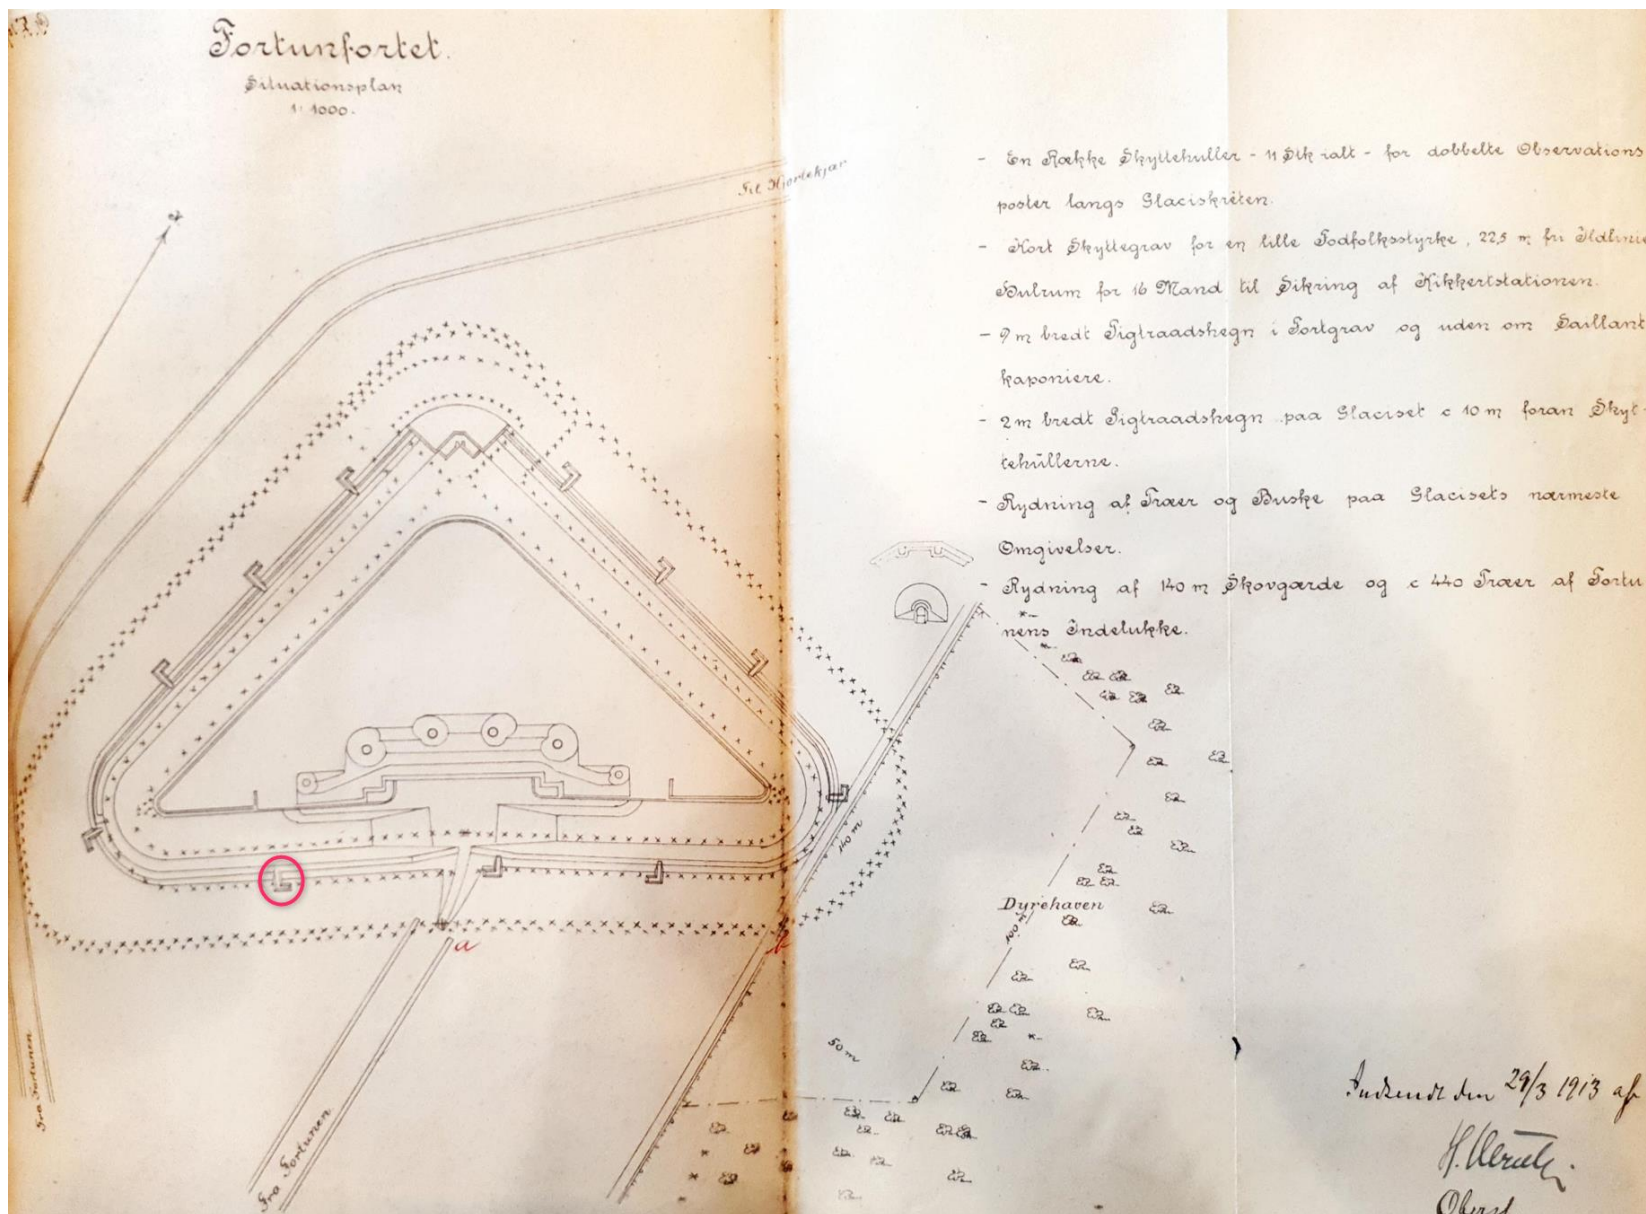 Fortunfortet.
Situationsplan
1:1000.
Til Hjortekjær
- En Række Skyttehuller - 11 Stk ialt - for dobbelte Observations
poster langs Glaciskrêten.
- Kort Skyttegrav for en lille Fodfolksstyrke, 22,5 m fri Ildlinie
Dulrum for 16 Mand til Sikring af Kikkertstationen.
- 9 m bredt Pigtraadshegn i Fortgrav og uden om Saillant
kaponiere.
- 2 m bredt Pigtraadshegn paa Glaciset c 10 m foran Skyt-
tehüllerne.
- Rydning af Træer og Buske paa Glacisets nærmeste
Omgivelser.
- Rydning af 140 m Skovgærde og c 440 Træer af Fortu
nens Indelukke.
140 m
Dyrehaven
100 m
a
b
50 m
Fra Fortunen
Fra Fortunen
Indsendt den 29/3 1913 af
Oberst